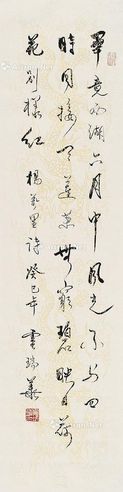 畢竟西湖六月中風光不与四
時同接天蓮葉無窮碧映日荷
花别樣紅 楊萬里詩癸巳年 瑞華